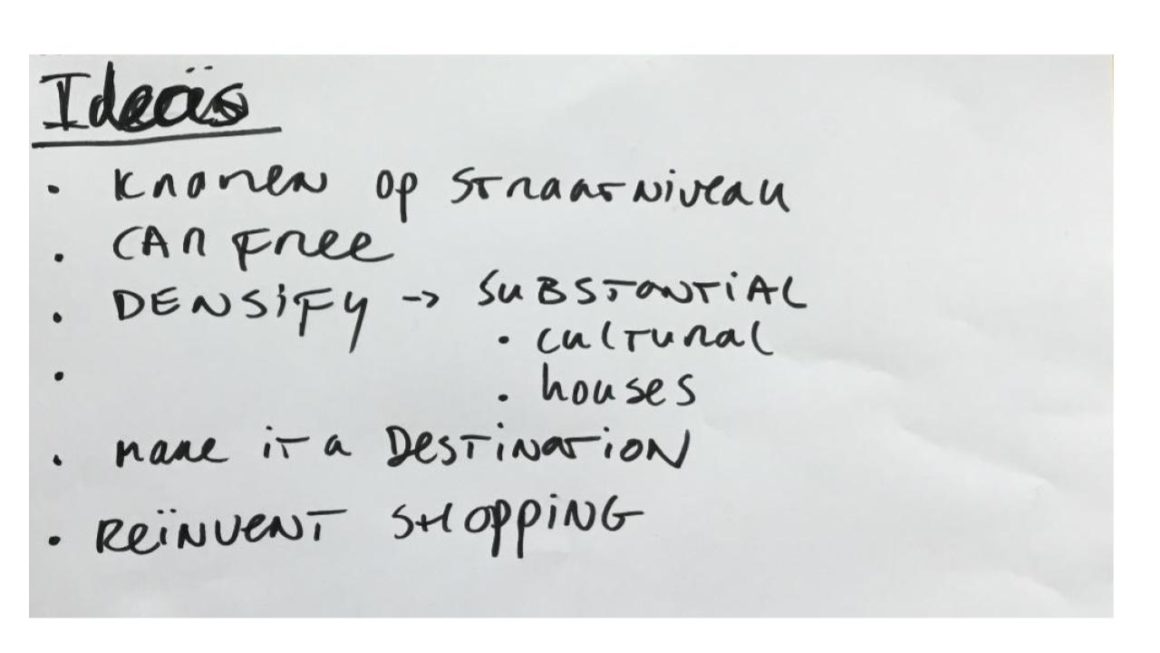 Ideeën
• Kramen op straatniveau
• CAR FREE
• DENSiFY -> SUBSTANTiAL
• cultural
• houses
• make it a DESTiNATiON
• REïNVENT SHOPPiNG